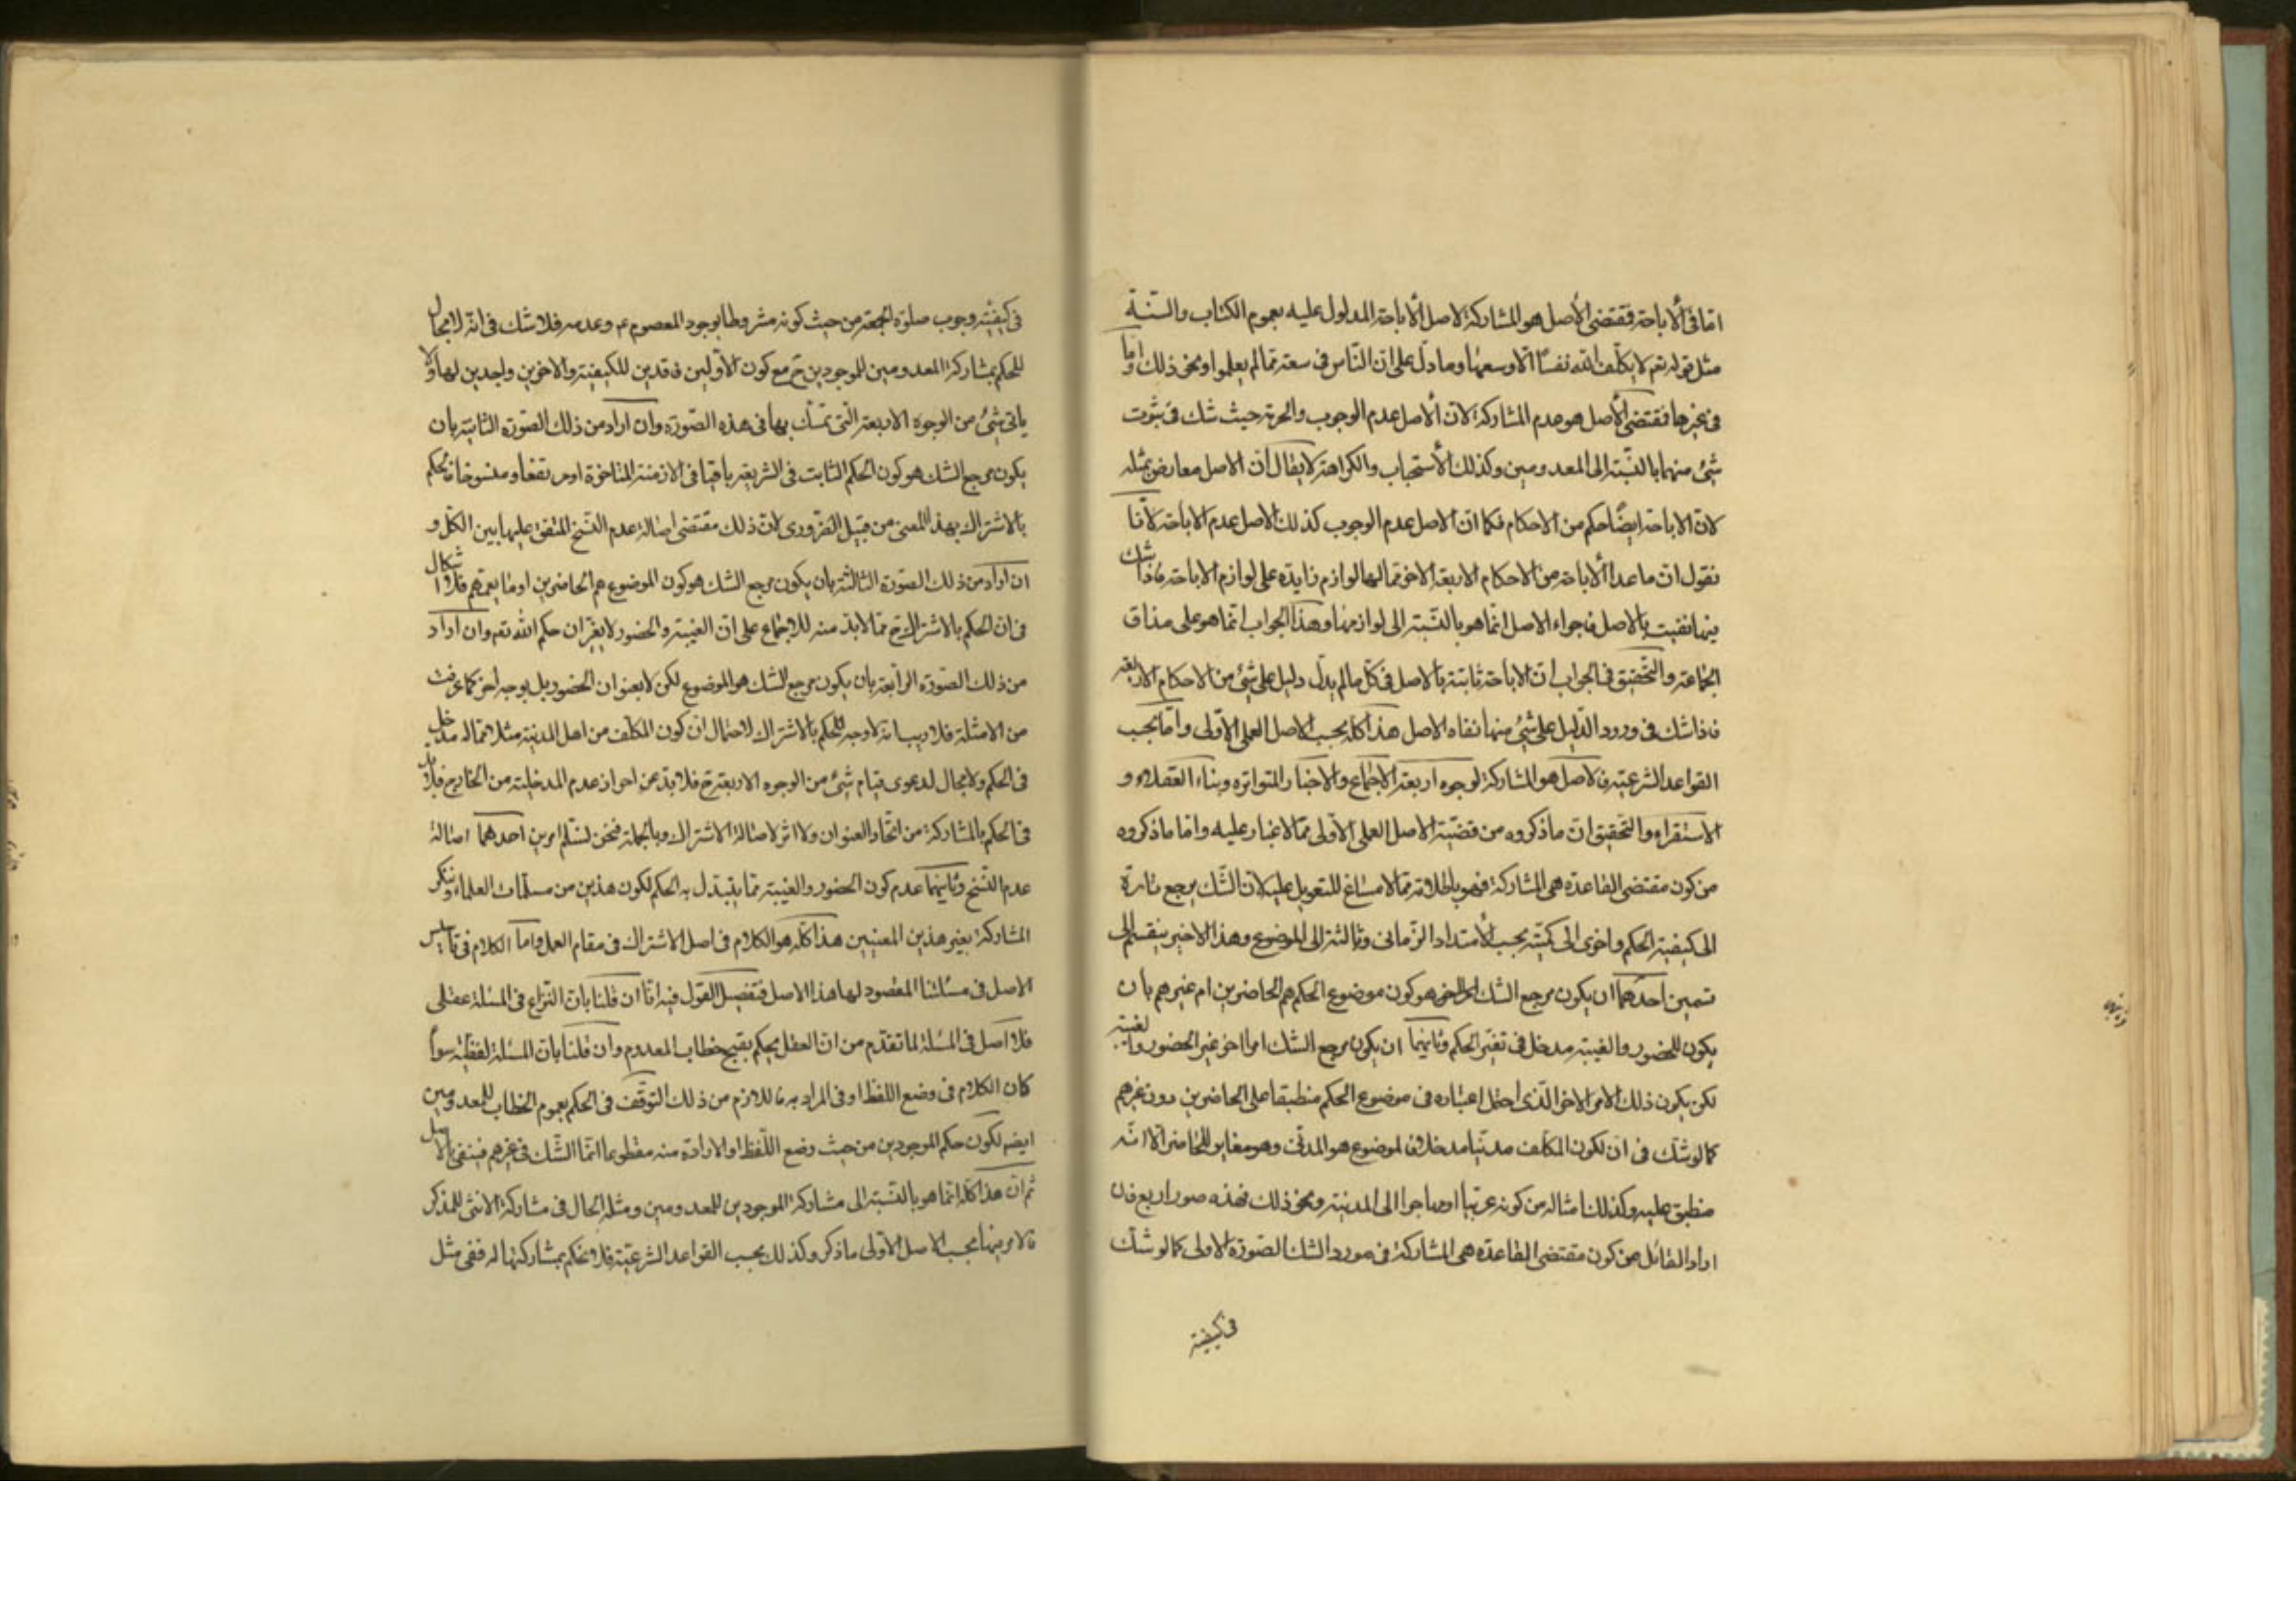 امّا فى الأباحة فمقتضى الأصل هو المشاركة لاصل الأباحة المدلول عليه بعموم الكتاب والسّنّة
مثل قوله تعم لا يكلّف الله نفسًا الّا وسعها وما دلّ على انّ النّاس فى سعة ممّا لم يعلموا ونحو ذلك وامّا
فى غيرها فمقتضى الأصل هو عدم المشاركة لانّ الأصل عدم الوجوب والحرمة حيث شك فى ثبوت
شئ منهما بالنّسبة الى المعدومين وكذلك الأستحباب والكراهة لا يقال انّ الاصل معارض بمثله
لانّ الاباحة ايضًا حكم من الاحكام فكما انّ الاصل عدم الوجوب كذلك الاصل عدم الاباحة لانّا
نقول انّ ما عدا الأباحة من الاحكام الاربعة الاخر ممّا لها لوازم زايدة على لوازم الاباحة فاذا شك
فيها نفيت بالاصل فاجراء الاصل انّما هو بالنّسبة الى لوازمها وهذا الجواب انّما هو على مذاق
الجماعة والتّحقيق فى الجواب انّ الاباحة ثابتة بالاصل فى كلّ ما لم يدلّ دليل على شئ من الاحكام الاربعة
فاذا شك فى ورود الدّليل على شئ منها نفاه الاصل هذا كلّه بحسب الاصل العملى الاوّلى وامّا بحسب
القواعد الشرعيّة فالاصل هو المشاركة لوجوه اربعة الاجماع والاخبار المتواترة وبناء العقلاء و
الاستقراء والتّحقيق انّ ما ذكروه من قضيّة الاصل العملى الاوّلى ممّا لا غبار عليه وامّا ما ذكروه
من كون مقتضى القاعدة هى المشاركة فهو باطلاقه ممّا لا مساغ للتعويل عليه لانّ الشّك يرجع تارة
الى كيفية الحكم واخرى الى كميّته بحسب الأمتداد الزّمانى وثالثة الى الموضوع وهذا الاخير ينقسم الى
قسمين احدهما ان يكون مرجع الشك هو كون موضوع الحكم هم الحاضرين ام غيرهم بان
يكون للحضور والغيبة مدخل فى تغيّر الحكم وثانيهما ان يكون مرجع الشك امرا اخر غير الحضور والغيبة
لكن يكون ذلك الامر الاخر الّذى احتمل اعتباره فى موضوع الحكم منطبقا على الحاضرين دون غيرهم
كما لو شكّ فى ان لكون المكلّف مدنيّا مدخلا فالموضوع هو المدنى وهو مغاير للحاضر الّا انّه
منطبق عليه وكذلك امثاله من كونه عربيّا او مهاجرا الى المدينة ونحو ذلك فهذه صور اربع فان
اراد القائل من كون مقتضى القاعدة هى المشاركة فى مورد الشك الصّورة الاولى كما لو شكّ
فى كيفيّة
فى كيفيّة وجوب صلوة الجمعة من حيث كونه مشروطا بوجود المعصوم ع وعدمه فلا شك فى انّه لا مجال
للحكم بمشاركة المعدومين للموجودين ح مع كون الاوّلين فاقدين للكيفيّة والاخرين واجدين لها ولا
ياتى شئ من الوجوه الاربعة الّتى تمسّك بها فى هذه الصّورة وان اراد من ذلك الصّورة الثّانية بان
يكون مرجع الشك هو كون الحكم الثابت فى الشريعة باقيا فى الازمنة المتاخرة او مرتفعا ومنسوخا فالحكم
بالاشتراك بهذا المعنى من قبيل الضّرورى لانّ ذلك مقتضى اصالة عدم النّسخ المتفق عليها بين الكلّ و
ان اراد من ذلك الصّورة الثّالثة بان يكون مرجع الشك هو كون الموضوع هم الحاضرين او ما يعمّهم فلا اشكال
فى ان الحكم بالاشتراك ح ممّا لا بدّ منه للاجماع على انّ الغيبة والحضور لا يغيّران حكم الله تعم وان اراد
من ذلك الصّورة الرّابعة بان يكون مرجع الشك هو الموضوع لكن لا بعنوان الحضور بل بوجه اخر كما عرفت
من الامثلة فلا ريب انّه لا وجه للحكم بالاشتراك لاحتمال ان كون المكلّف من اهل المدينة مثلا ممّا له مدخل
فى الحكم ولا مجال لدعوى قيام شئ من الوجوه الاربعة ح فلا بدّ من احراز عدم المدخليّة من الخارج فلا بدّ
فى الحكم بالمشاركة من اتّحاد العنوان ولا اثر لاصالة الاشتراك وبالجملة فنحن نسلّم امرين احدهما اصالة
عدم النّسخ وثانيهما عدم كون الحضور والغيبة ممّا يتبدّل به الحكم لكون هذين من مسلّمات العلماء وننكر
المشاركة بغير هذين المعنيين هذا كلّه هو الكلام فى اصل الاشتراك فى مقام العمل وامّا الكلام فى تاسيس
الاصل فى مسئلتنا المقصود لها هذا الاصل فتفصيل القول فيه انّا ان قلنا بانّ النّزاع فى المسئلة عقلى
فلا اصل فى المسئلة لما تقدّم من انّ العقل يحكم بقبح خطاب المعدوم وان قلنا بانّ المسئلة لفظيّة سواء
كان الكلام فى وضع اللفظ او فى المراد به فاللازم من ذلك التوقّف فى الحكم بعموم الخطاب للمعدومين
ايضم لكون حكم الموجودين من حيث وضع اللّفظ او الارادة منه مقطوعا انّما الشّك فى غيرهم فينفى بالاصل
ثمّ انّ هذا كلّه انّما هو بالنّسبة الى مشاركة الموجودين للمعدومين ومثله الحال فى مشاركة الانثى للمذكر
فالامر فيها بحسب الاصل الاوّلى ما ذكر وكذلك بحسب القواعد الشرعيّة فلا نحكم بمشاركتها له ففى مثل